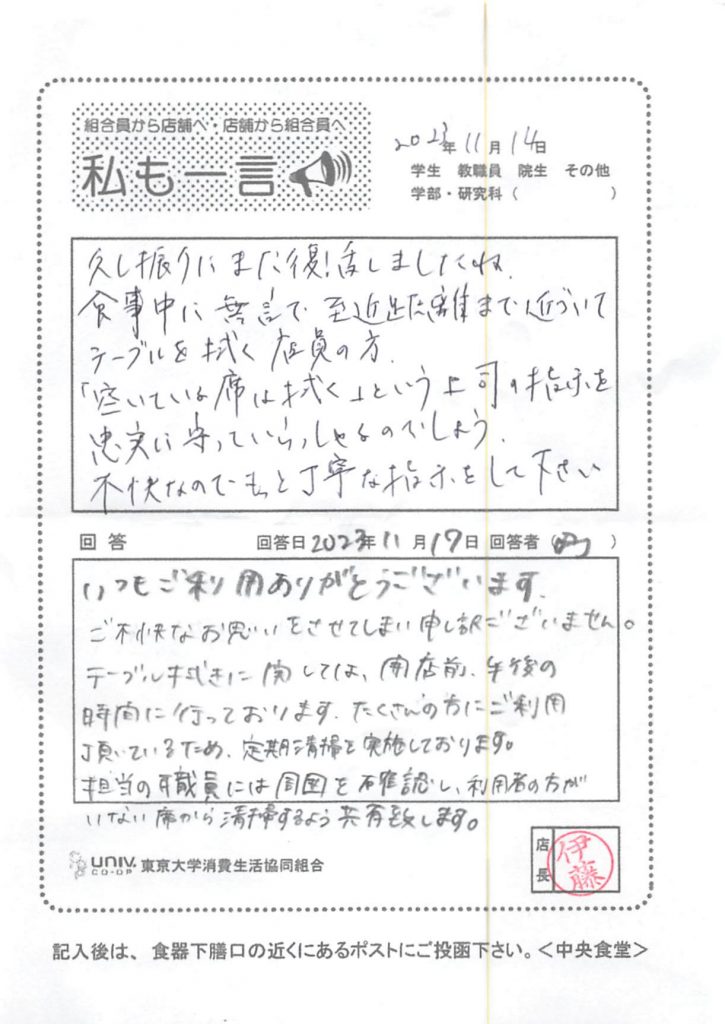 組合員から店舗へ・店舗から組合員へ
私も一言
2023年11月14日
学生 教職員 院生 その他
学部・研究科( )
久し振りにまた復活しましたね。
食事中に無言で至近距離まで近づいて
テーブルを拭く店員の方。
「空いている席は拭く」という上司の指示を
忠実に守っていらっしゃるのでしょう。
不快なのでもっと丁寧な指示をして下さい
回答 回答日2023年11月17日 回答者( )
いつもご利用ありがとうございます。
ご不快なお思いをさせてしまい申し訳ございません。
テーブル拭きに関しては、開店前、午後の
時間に行っております。たくさんの方にご利用
頂いているため、定期清掃を実施しております。
担当の職員には周囲を確認し、利用者の方が
いない席から清掃するよう共有致します。
UNIV. CO-OP 東京大学消費生活協同組合
店長 伊藤
記入後は、食器下膳口の近くにあるポストにご投函下さい。<中央食堂>